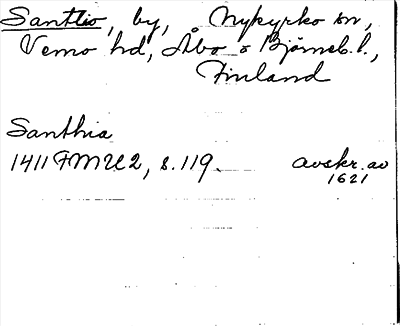 Santtio, by, Nykyrko sn,
Vemo hd, Åbo o Björneb. l.,
Finland
Santhia
1411 FMU 2, s. 119. avskr. av
1621